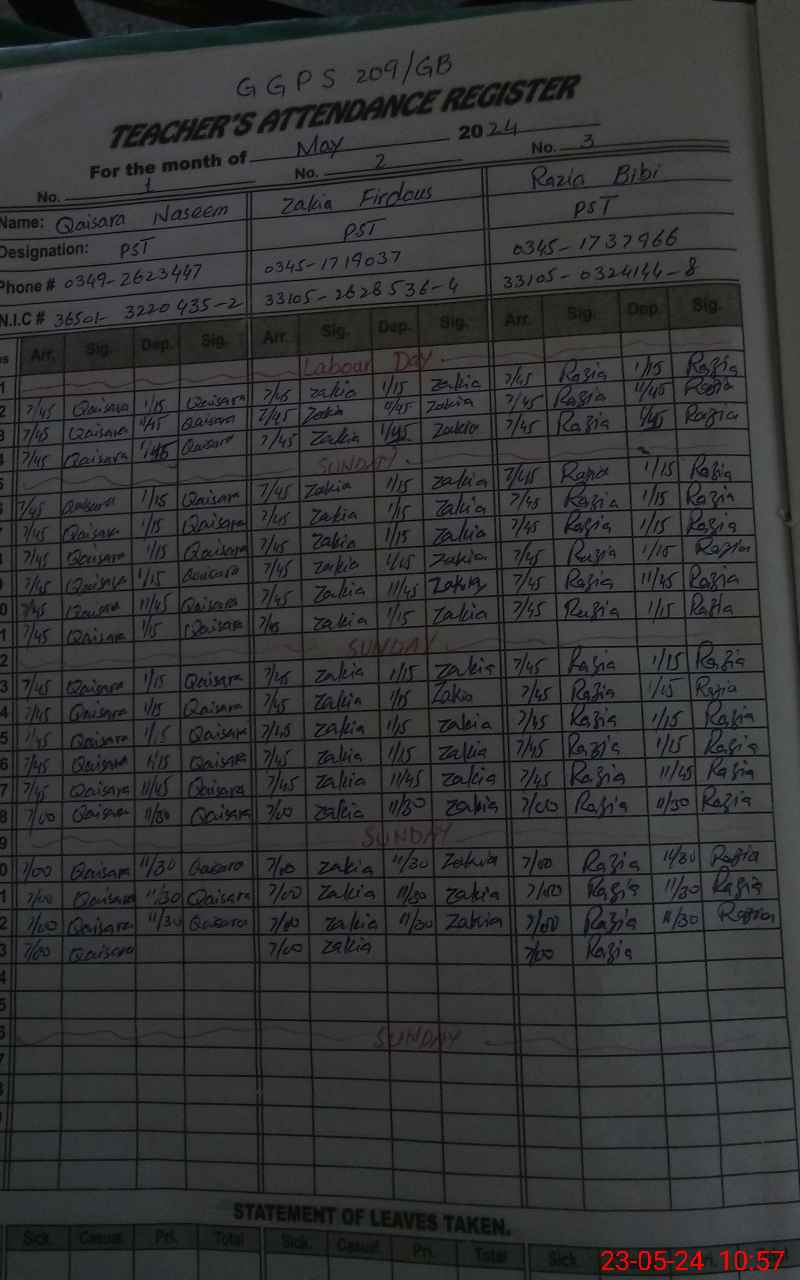 GGPS 209/GB
TEACHER'S ATTENDANCE REGISTER
For the month of May 2024
No. 1 No. 2 No. 3
Name: Qaisara Naseem Zakia Firdous Razia Bibi
Designation: PST PST PST
Phone # 0349-2623447 0345-1719037 0345-1737966
N.I.C # 36501-3220435-2 33105-2628536-4 33105-0324144-8
Arr. Sig. Dep. Sig. Arr. Sig. Dep. Sig. Arr. Sig. Dep. Sig.
1 Labour Day.
2 7/45 Qaisara 1/15 Qaisara 7/45 Zakia 1/15 Zakia 7/45 Razia 1/15 Razia
3 7/45 Qaisara 11/45 Qaisara 7/45 Zakia 11/45 Zakia 7/45 Razia 11/45 Razia
4 7/45 Qaisara Qaisara 7/45 Zakia Zakia 7/45 Razia Razia
5 SUNDAY.
6 7/45 Qaisara 1/15 Qaisara 7/45 Zakia 1/15 Zakia 7/45 Razia 1/15 Razia
7 7/45 Qaisara 1/15 Qaisara 7/45 Zakia 1/15 Zakia 7/45 Razia 1/15 Razia
8 7/45 Qaisara 1/15 Qaisara 7/45 Zakia 1/15 Zakia 7/45 Razia 1/15 Razia
9 7/45 Qaisara 1/15 Qaisara 7/45 Zakia 1/15 Zakia 7/45 Razia 1/15 Razia
0 7/45 Qaisara 11/45 Qaisara 7/45 Zakia 11/45 Zakia 7/45 Razia 11/45 Razia
1 7/45 Qaisara 1/15 Qaisara 7/45 Zakia 1/15 Zakia 7/45 Razia 1/15 Razia
2 SUNDAY
3 7/45 Qaisara 1/15 Qaisara 7/45 Zakia 1/15 Zakia 7/45 Razia 1/15 Razia
4 7/45 Qaisara 1/15 Qaisara 7/45 Zakia 1/15 Zakia 7/45 Razia 1/15 Razia
5 7/45 Qaisara 1/15 Qaisara 7/45 Zakia 1/15 Zakia 7/45 Razia 1/15 Razia
6 7/45 Qaisara 1/15 Qaisara 7/45 Zakia 1/15 Zakia 7/45 Razia 1/15 Razia
7 7/45 Qaisara 11/45 Qaisara 7/45 Zakia 11/45 Zakia 7/45 Razia 11/45 Razia
8 7/00 Qaisara 11/30 Qaisara 7/00 Zakia 11/30 Zakia 7/00 Razia 11/30 Razia
9 SUNDAY
0 7/00 Qaisara 11/30 Qaisara 7/00 Zakia 11/30 Zakia 7/00 Razia 11/30 Razia
1 7/00 Qaisara 11/30 Qaisara 7/00 Zakia 11/30 Zakia 7/00 Razia 11/30 Razia
2 7/00 Qaisara 11/30 Qaisara 7/00 Zakia 11/30 Zakia 7/00 Razia 11/30 Razia
3 7/00 Qaisara 7/00 Zakia 7/00 Razia
4
5
6 SUNDAY
7
STATEMENT OF LEAVES TAKEN.
Sick. Casual. Pri. Total Sick. Casual. Pri. Total Sick.
23-05-24 10:57